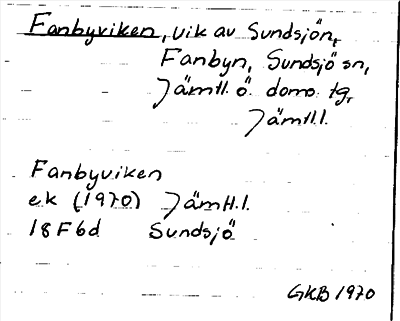 Fanbyviken, vik av Sundsjön,
Fanbyn, Sundsjö sn,
Jämtl. ö. doms. tg,
Jämtl.l.
Fanbyviken
ek (1970) Jämtl.l.
18F6d Sundsjö
GKB 1970